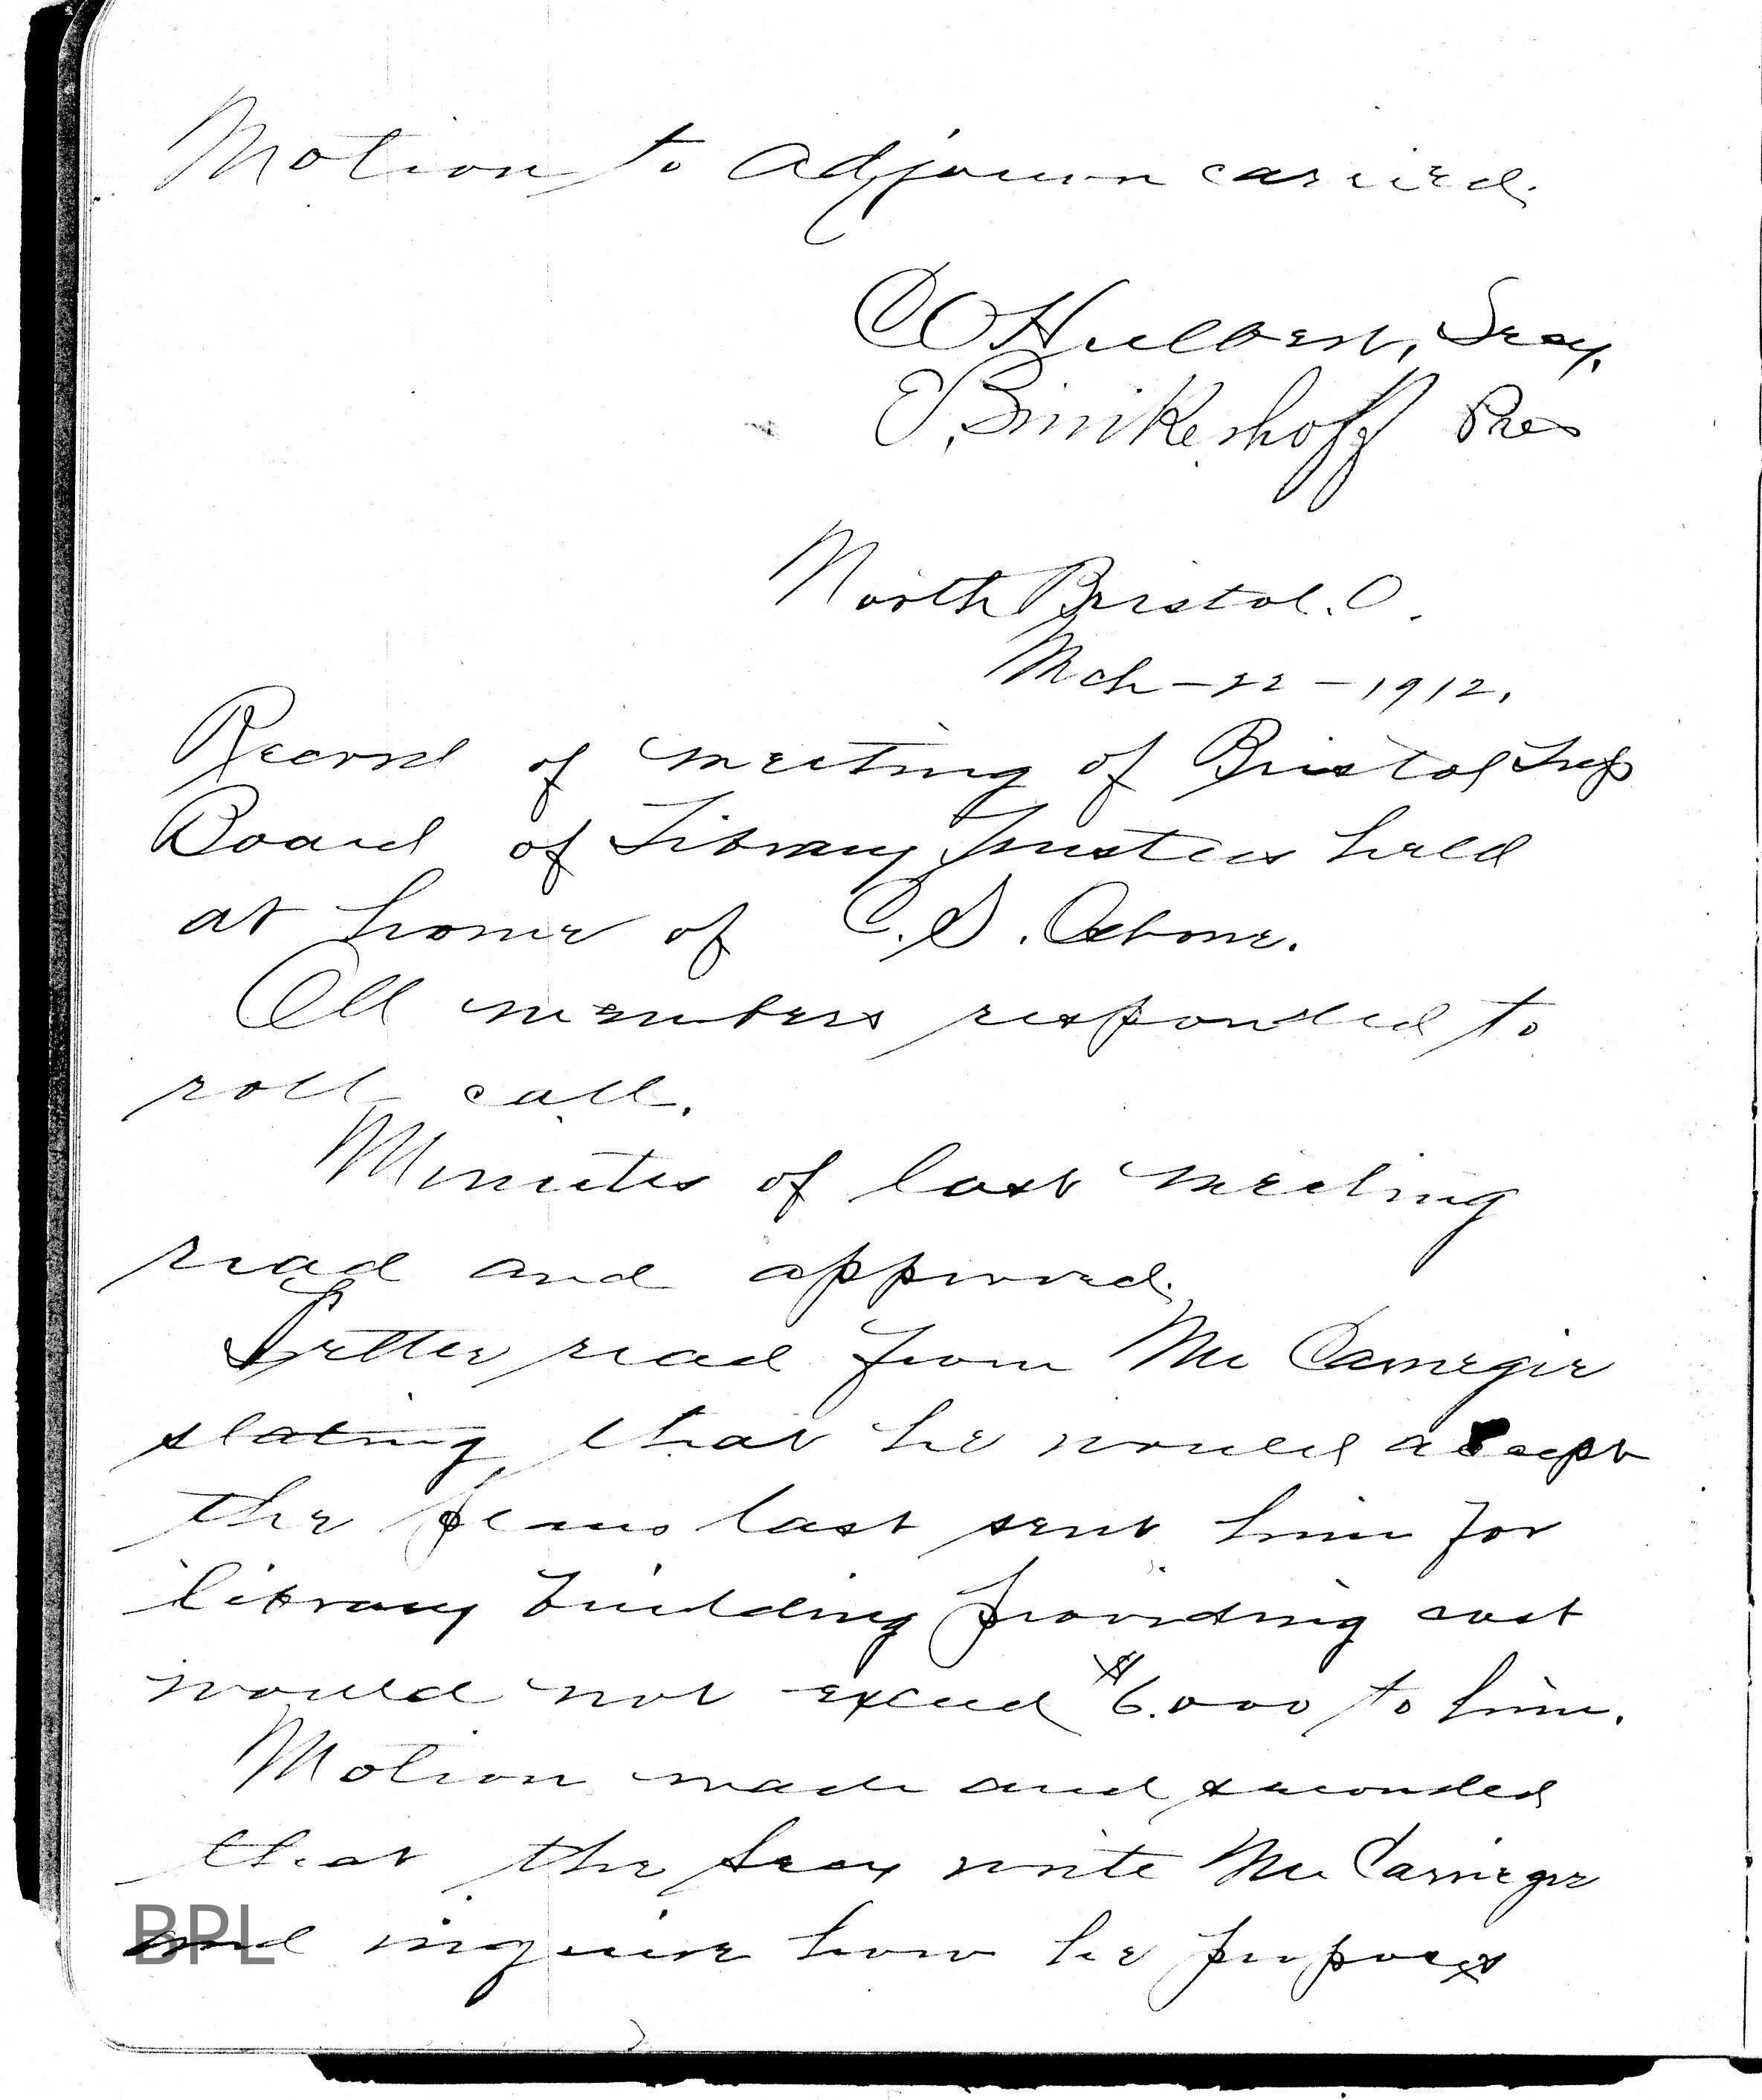 Motion to adjourn carried.
C O Hulbert, Secy.
Brinkerhoff Pres
North Bristol. O.
Mch - 22 - 1912.
Record of meeting of Bristol Twp
Board of Library Trustees held
at home of C. S. Osborne.
All members responded to
roll call.
Minutes of last meeting
read and approved.
Letter read from Mr Carnegie
stating that he would accept
the plans last sent him for
library building providing cost
would not exceed $6.000 to him.
Motion made and seconded
that the Secy write Mr Carnegie
and inquire how he proposes
BPL